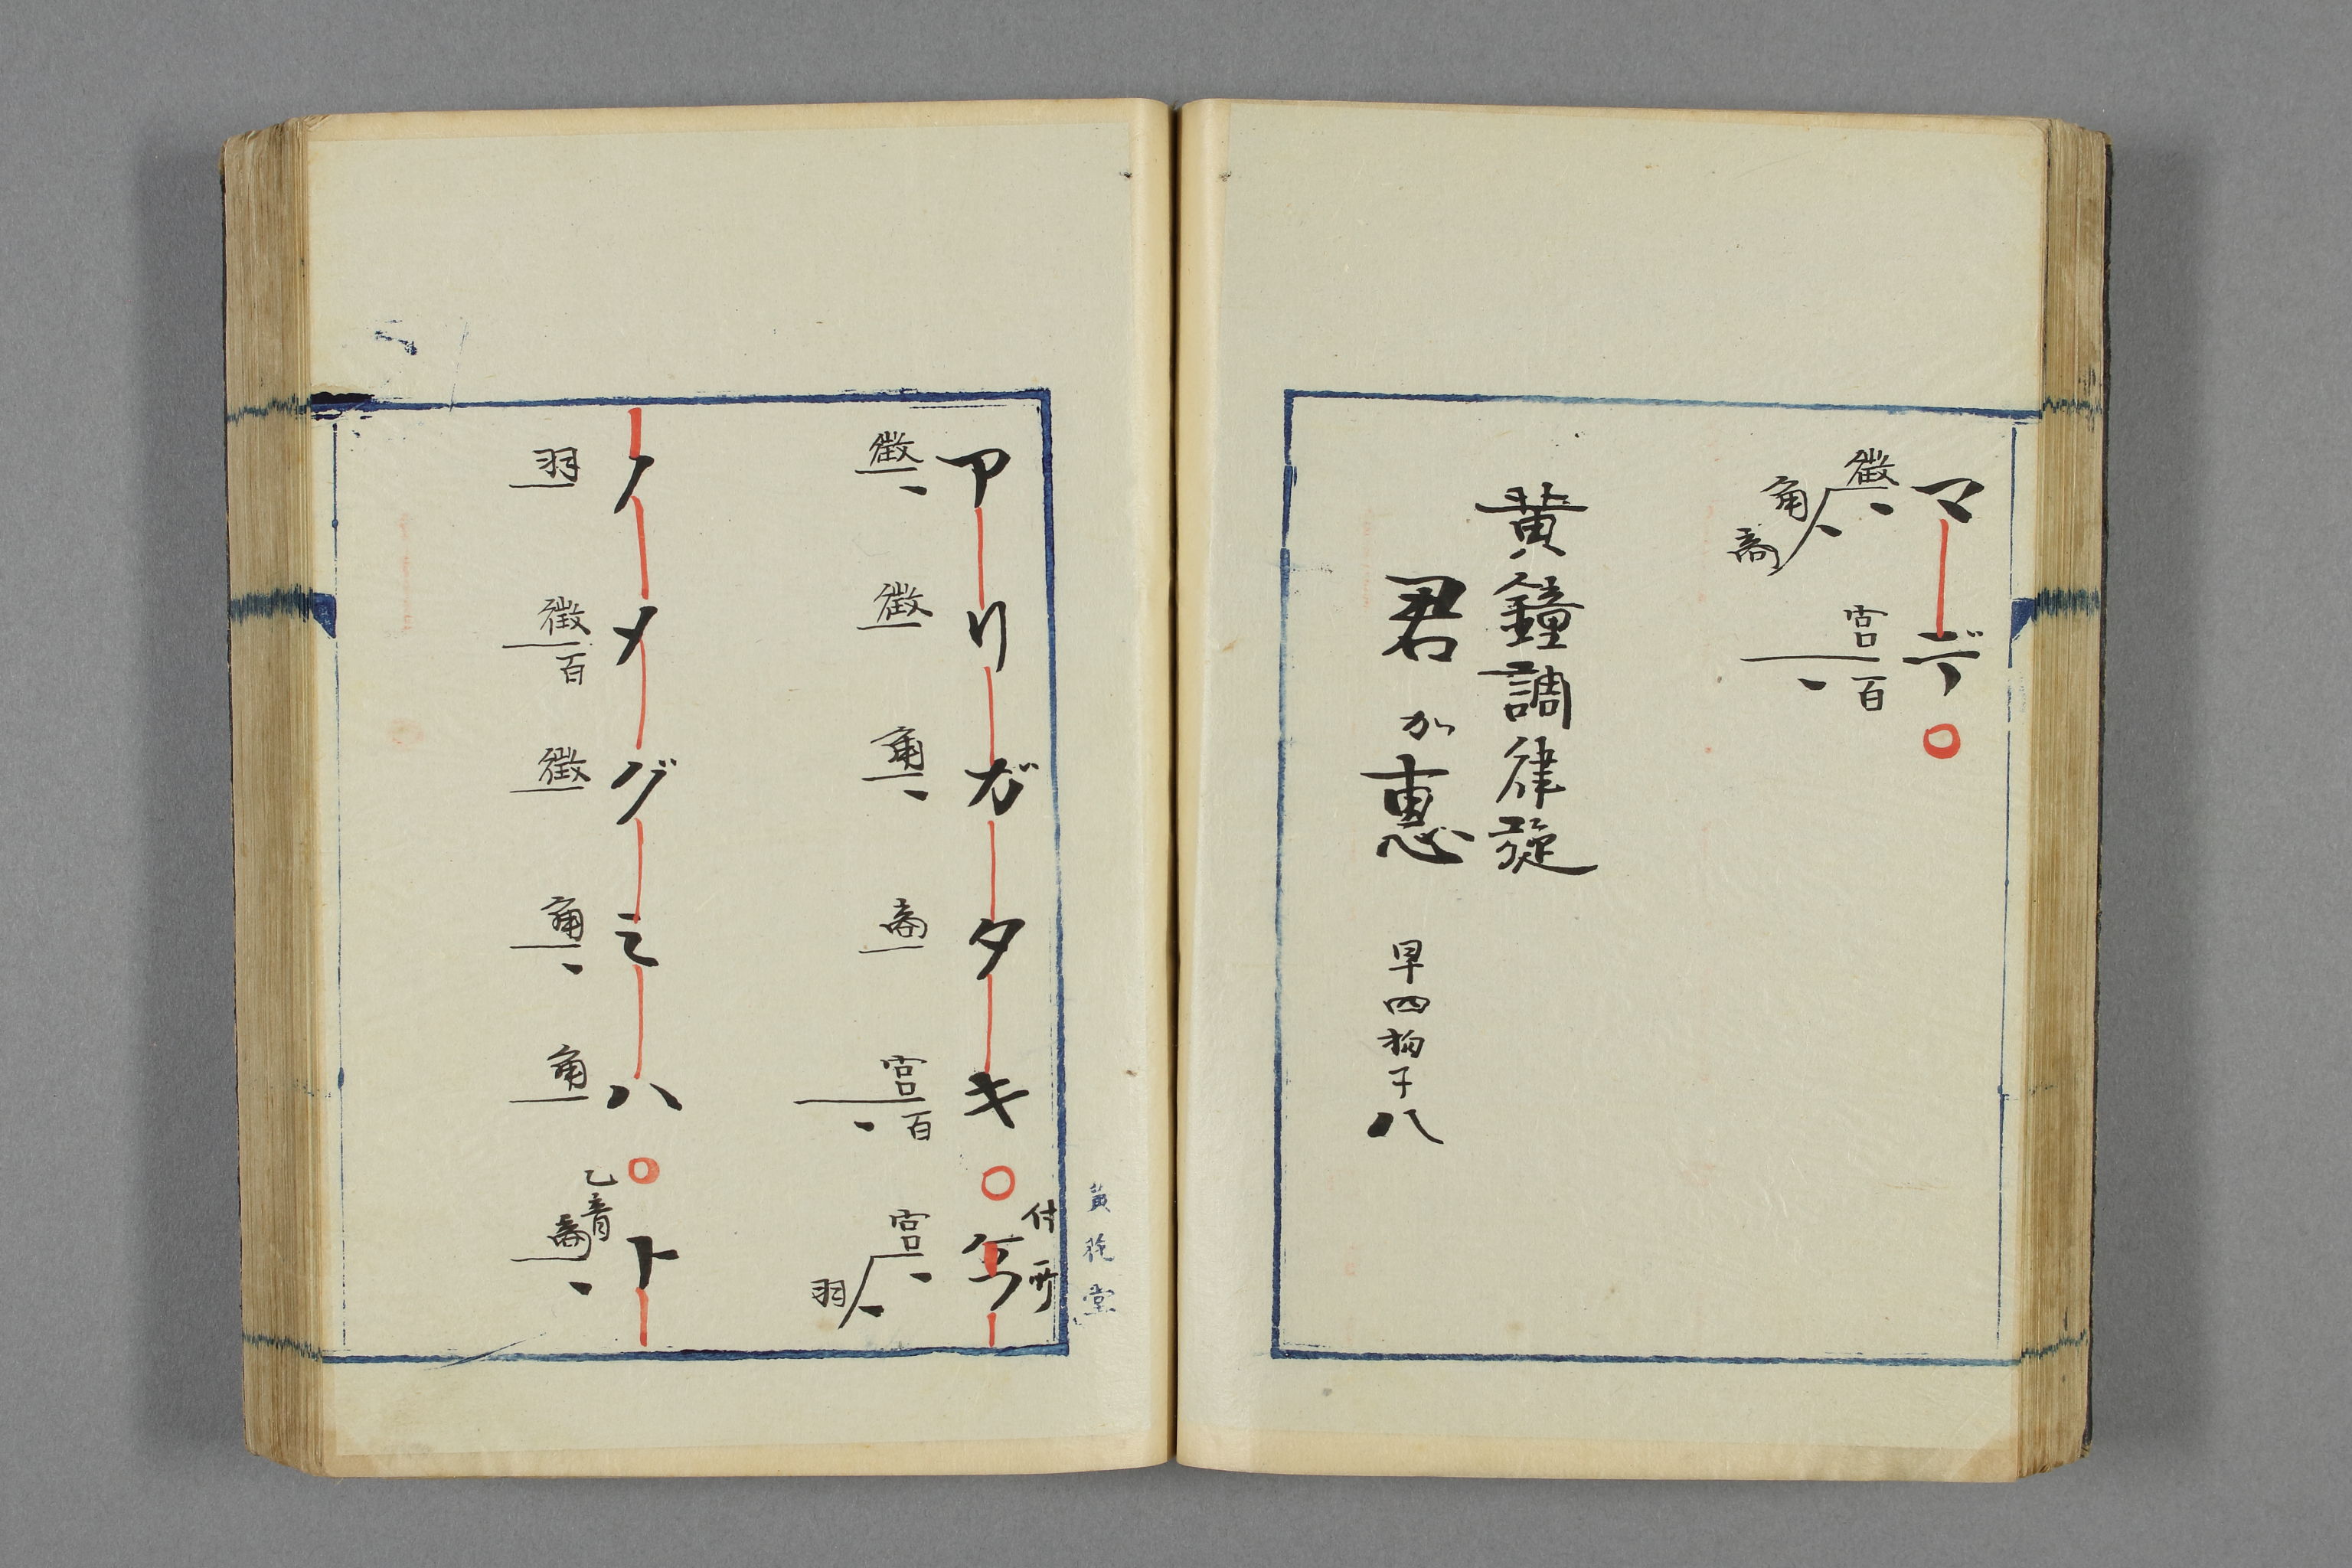 マデ
徴角商宮百
黄鐘調律旋
君が恵 早四拍子八
付所
アリガタキ
徴徴角商宮百宮羽
ノメグミハト
羽徴百徴角角乙音商